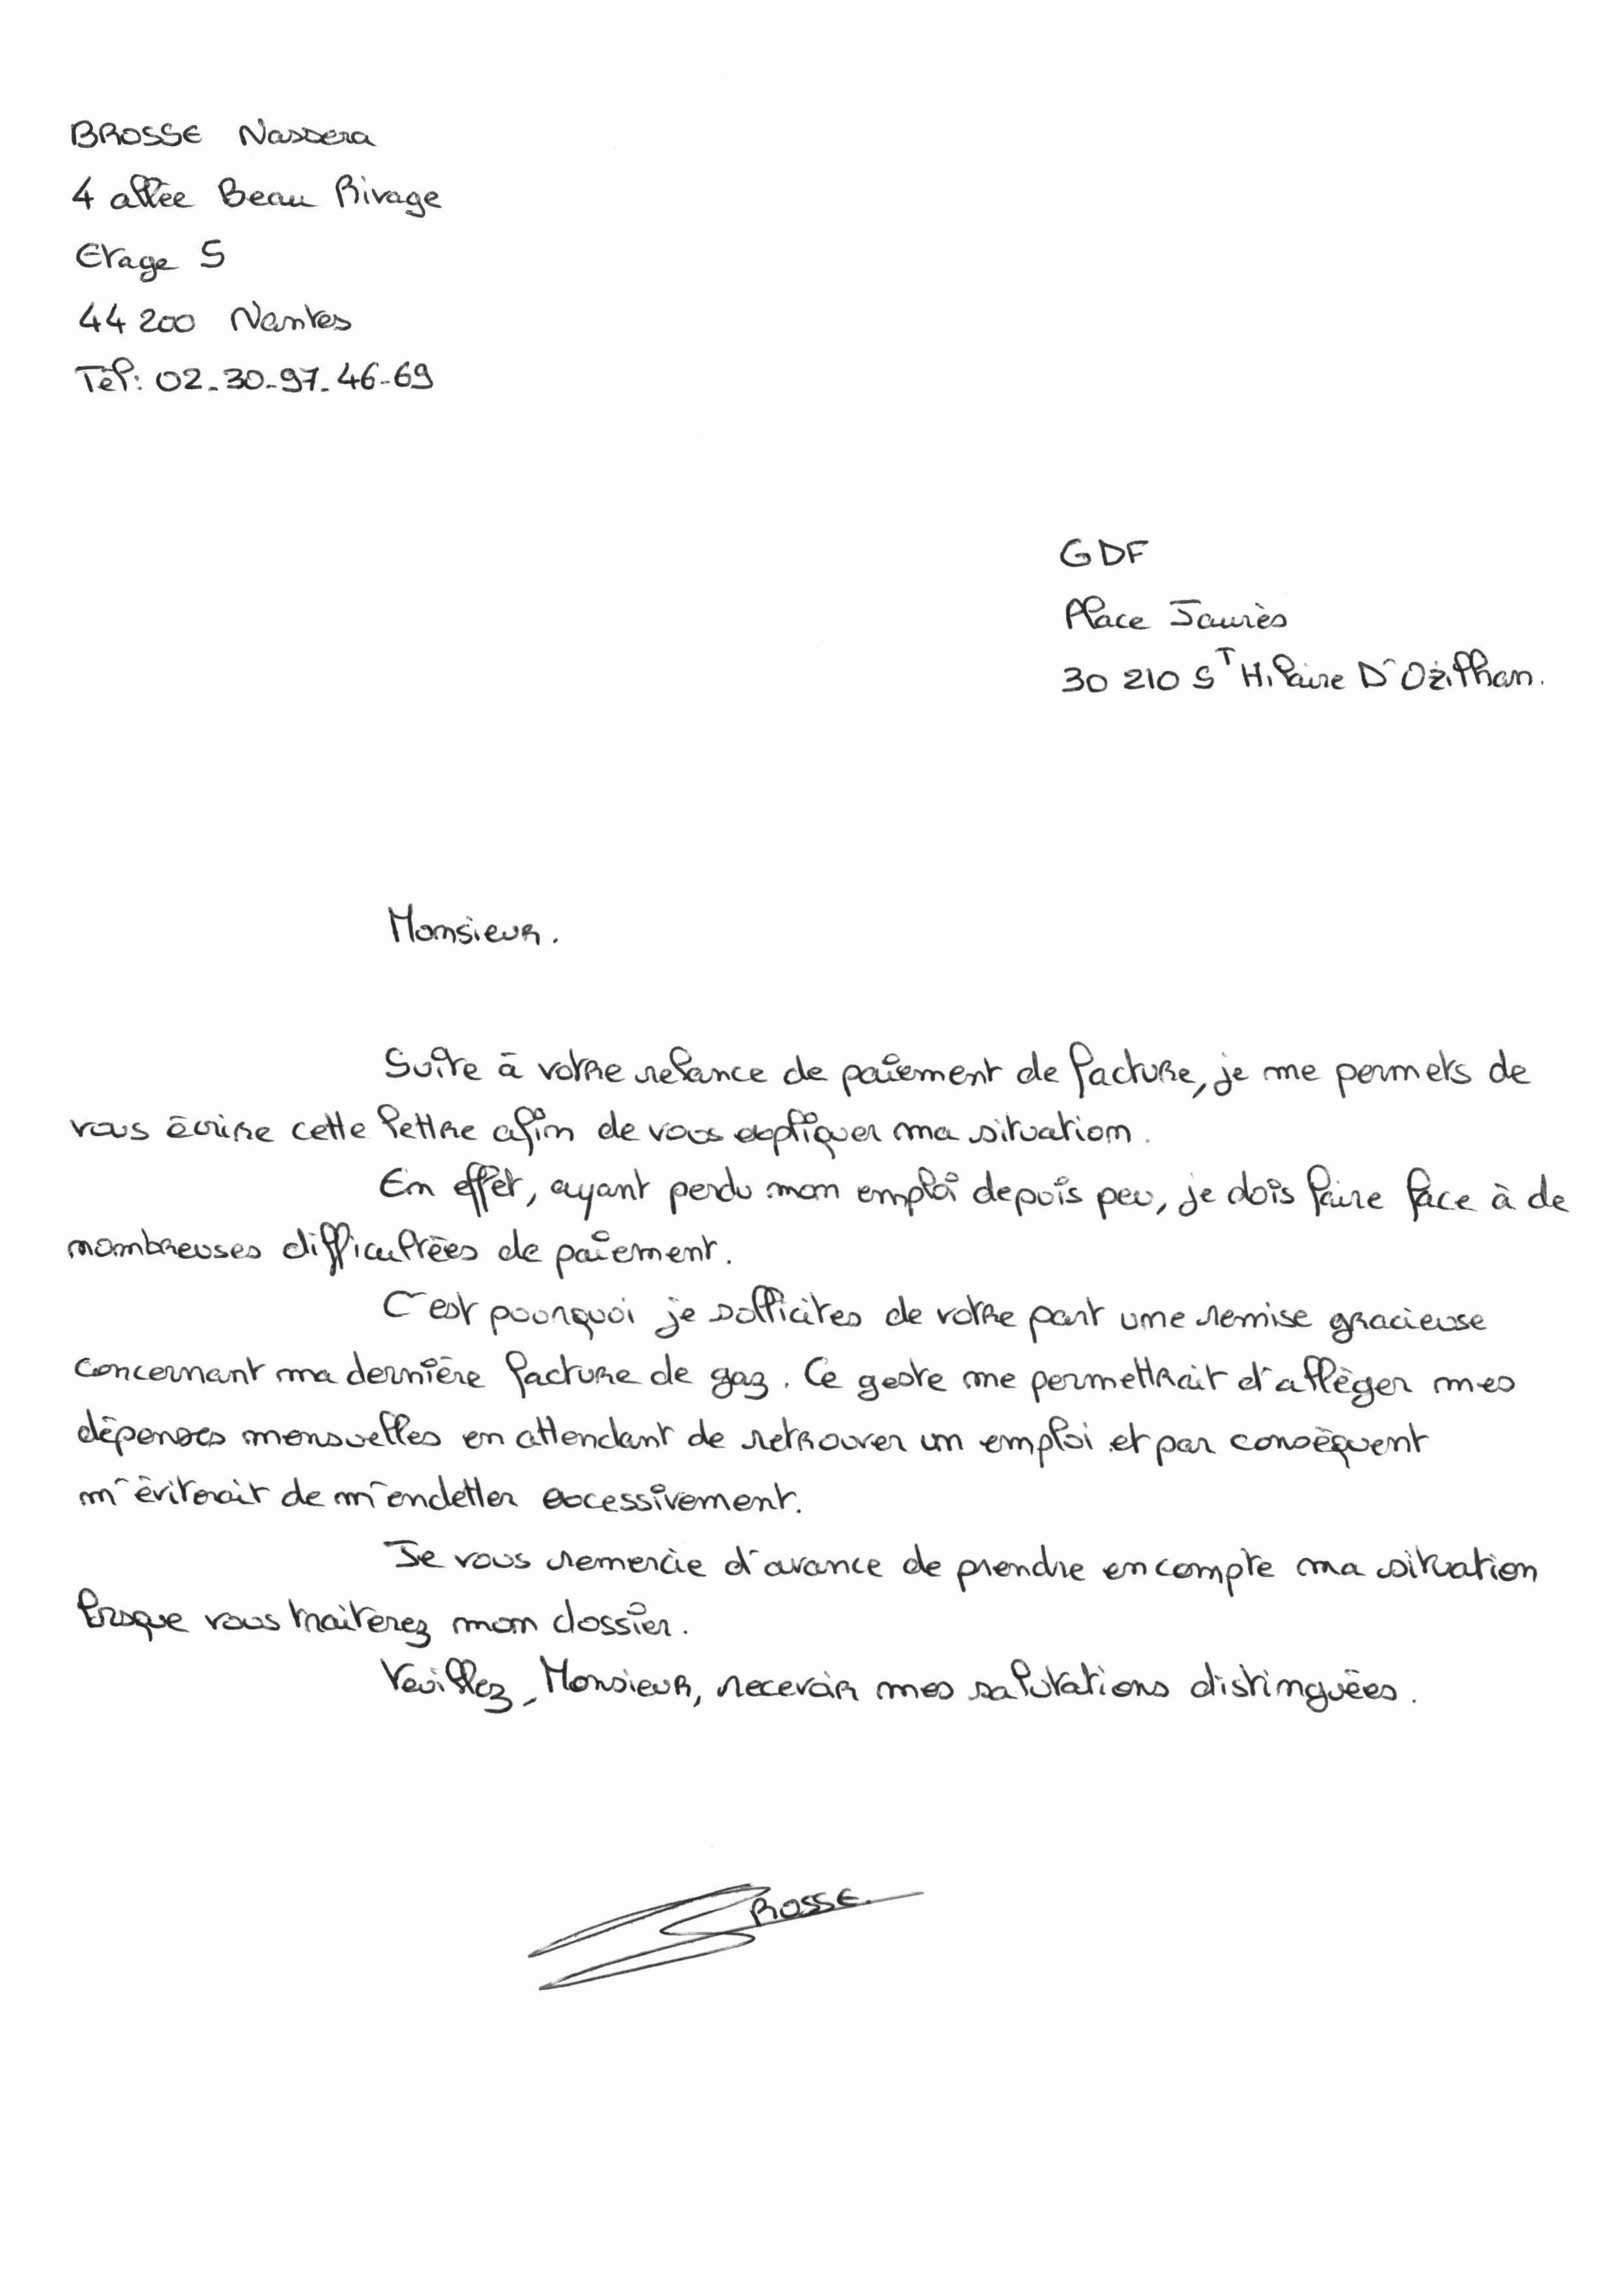 BROSSE Nassera
4 allée Beau Rivage
Etage 5
44 200 Nantes
Tél: 02-30-97-46-69
GDF
Place Jaurès
30 210 ST Hilaire D'Ozilhan.
Monsieur.
Suite à votre relance de paiement de facture, je me permets de
vous écrire cette lettre afin de vous expliquer ma situation.
En effet, ayant perdu mon emploi depuis peu, je dois faire face à de
nombreuses difficultées de paiement.
C'est pourquoi je sollicites de votre part une remise gracieuse
concernant ma dernière facture de gaz. Ce geste me permettrait d'alléger mes
dépenses mensuelles en attendant de retrouver un emploi et par conséquent
m'éviterait de m'endetter excessivement.
Je vous remercie d'avance de prendre en compte ma situation
lorsque vous traiterez mon dossier.
Veuillez, Monsieur, recevoir mes salutations distinguées.
BROSSE.